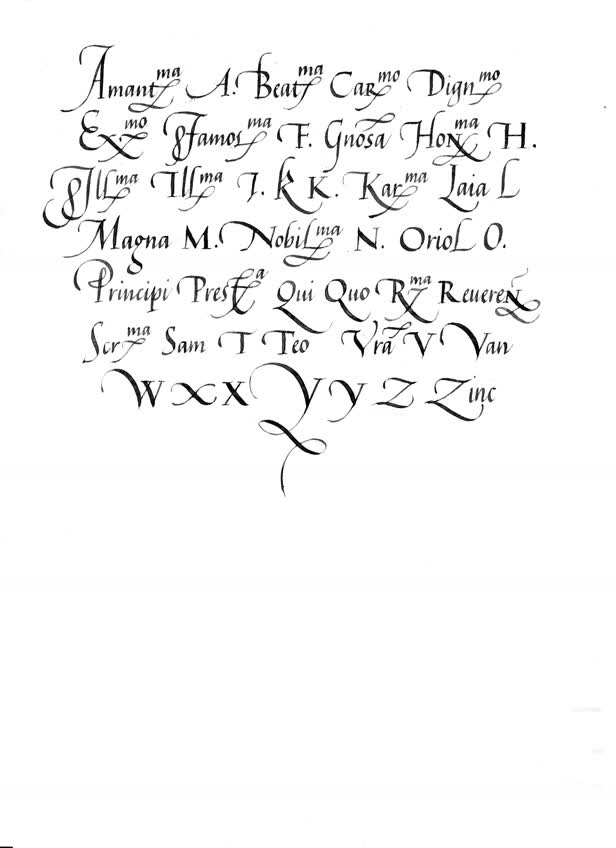 Amantᵐᵃ A. Beatᵐᵃ Carᵐᵒ Dignᵐᵒ
Exᵐᵒ Famosᵐᵃ F. Gnosa Honᵐᵃ H.
Illᵐᵃ Illᵐᵃ J. K K. Karᵐᵃ Laia L
Magna M. Nobilᵐᵃ N. Oriol O.
Principi Prestᵃ Qui Quo Rᵐᵃ Reueren
Scrᵐᵃ Sam T Teo Vra V Van
W X X Y Y Z Zinc